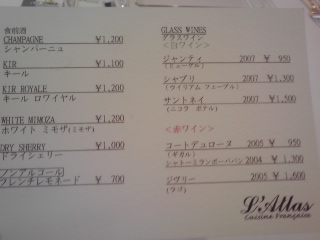 食前酒
CHAMPAGNE ¥1,200
シャンパーニュ
KIR ¥1,100
キール
KIR ROYALE ¥1,200
キール ロワイヤル
WHITE MIMOZA ¥1,200
ホワイト ミモザ(ミモザ)
DRY SHERRY ¥1,000
ドライシェリー
ノンアルコール
フレンチレモネード ¥ 700
GLASS WINES
グラスワイン
<白ワイン>
ジャンティ 2007 ¥ 950
(ヒューゲル)
シャブリ 2007 ¥1,300
(ウイリアム フェーブル)
サントネイ 2007 ¥1,500
(ニコラ ポテル)
<赤ワイン>
コートデュローヌ 2005 ¥ 950
(ギガル)
シャトーミランボーパパン 2004 ¥ 1,300
ジヴリー 2005 ¥ 1,600
(ラゴ)
L'Atlas
Cuisine Française